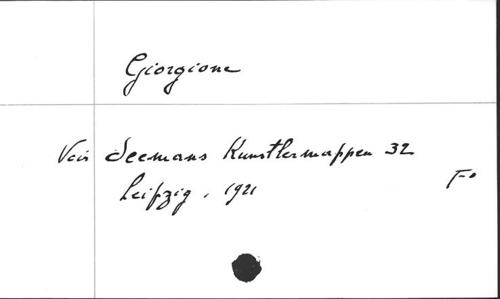 Giorgione
Voir Seemans Kunstlermappen 32
Leipzig, 1921
F°